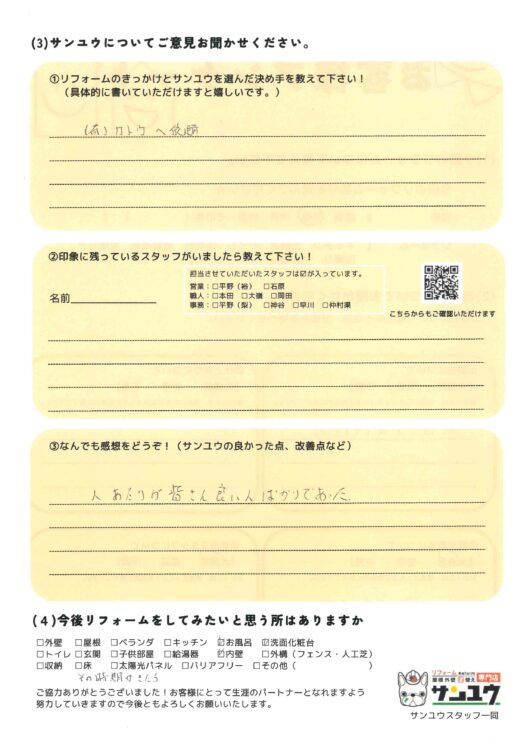 (3)サンユウについてご意見お聞かせください。
①リフォームのきっかけとサンユウを選んだ決め手を教えて下さい！
（具体的に書いていただけますと嬉しいです。）
(有)カトウへ依頼
②印象に残っているスタッフがいましたら教えて下さい！
担当させていただいたスタッフは☑が入っています。
営業：□平野（裕） □石原
職人：□本田 □大嶺 □岡田
事務：□平野（梨） □神谷 □早川 □仲村渠
名前
こちらからもご確認いただけます
③なんでも感想をどうぞ！（サンユウの良かった点、改善点など）
人あたりが皆さん良い人ばかりであった
(4)今後リフォームをしてみたいと思う所はありますか
□外壁 □屋根 □ベランダ □キッチン ☑お風呂 ☑洗面化粧台
□トイレ □玄関 □子供部屋 □給湯器 ☑内壁 □外構（フェンス・人工芝）
□収納 □床 □太陽光パネル □バリアフリー □その他（ ）
その時期がきたら
ご協力ありがとうございました！お客様にとって生涯のパートナーとなれますよう
努力していきますので今後ともよろしくお願いいたします。
リフォーム
屋根外壁 専門店
サンユウ
サンユウスタッフ一同